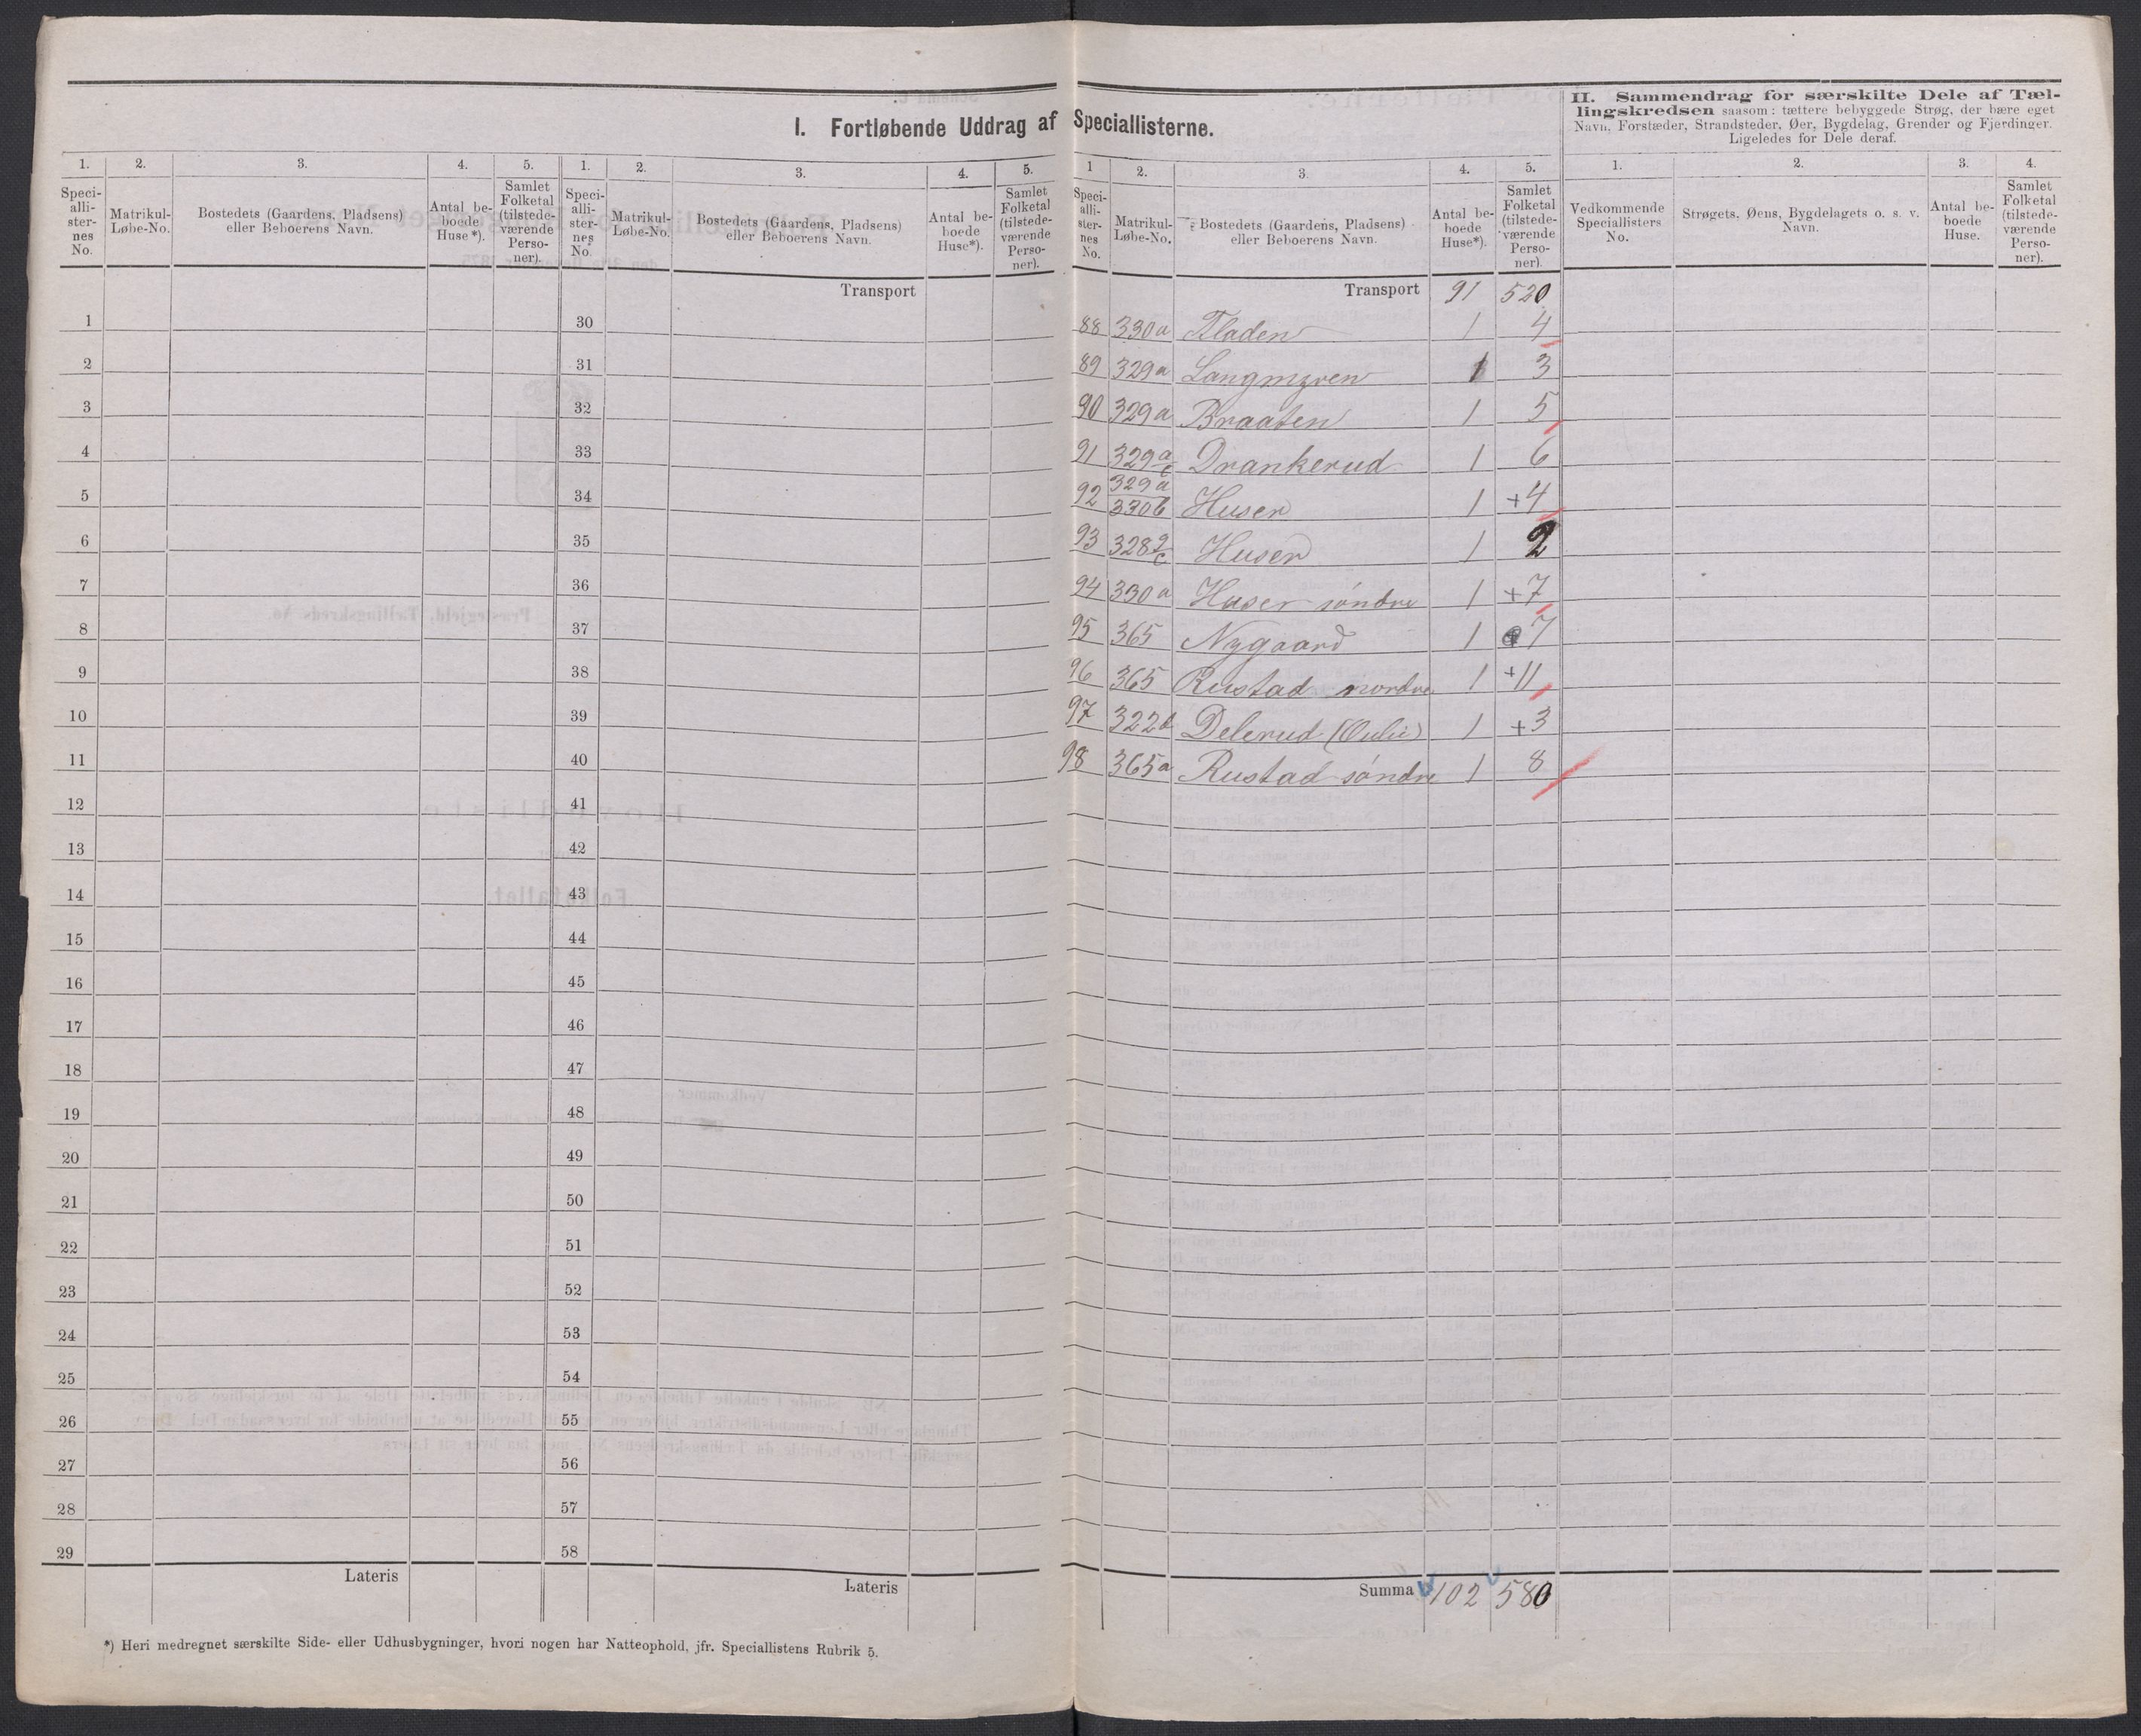 I. Fortløbende Uddrag af Speciallisterne.
1. 2. 3. 4. 5. 1. 2. 3. 4. 5.
Speci-alli-ster-nes No. Matrikul-Løbe-No. Bostedets (Gaardens, Pladsens) eller Beboerens Navn. Antal be-boede Huse*). Samlet Folketal (tilstede-værende Perso-ner). Speci-alli-ster-nes No. Matrikul-Løbe-No. Bostedets (Gaardens, Pladsens) eller Beboerens Navn. Antal be-boede Huse*). Samlet Folketal (tilstede-værende Perso-ner).
Transport
1 30
2 31
3 32
4 33
5 34
6 35
7 36
8 37
9 38
10 39
11 40
12 41
13 42
14 43
15 44
16 45
17 46
18 47
19 48
20 49
21 50
22 51
23 52
24 53
25 54
26 55
27 56
28 57
29 58
Lateris Lateris
*) Heri medregnet særskilte Side- eller Udhusbygninger, hvori nogen har Natteophold, jfr. Speciallistens Rubrik 5.
1 2. 3. 4. 5.
Speci-alli-ster-nes No. Matrikul-Løbe-No. Bostedets (Gaardens, Pladsens) eller Beboerens Navn. Antal be-boede Huse*). Samlet Folketal (tilstede-værende Perso-ner).
Transport 91 520
88 330a Fladen 1 4
89 329a Langmyren 1 3
90 329a Braaten 1 5
91 329a/c Drankerud 1 6
92 329a/330b Huser 1 +4
93 328 Huser 1 2
94 330a Huser söndre 1 +7
95 365 Nygaard 1 7
96 365 Rustad nordre 1 +11
97 322 Delerud 1 +3
98 365a Rustad söndre 1 8
Summa 102 580
II. Sammendrag for særskilte Dele af Tæl-
lingskredsen saasom: tættere bebyggede Strøg, der bære eget
Navn, Forstæder, Strandsteder, Øer, Bygdelag, Grender og Fjerdinger.
Ligeledes for Dele deraf.
1. 2. 3. 4.
Vedkommende Speciallisters No. Strøgets, Øens, Bygdelagets o. s. v. Navn. Antal be-boede Huse. Samlet Folketal (tilstede-værende Perso-ner).